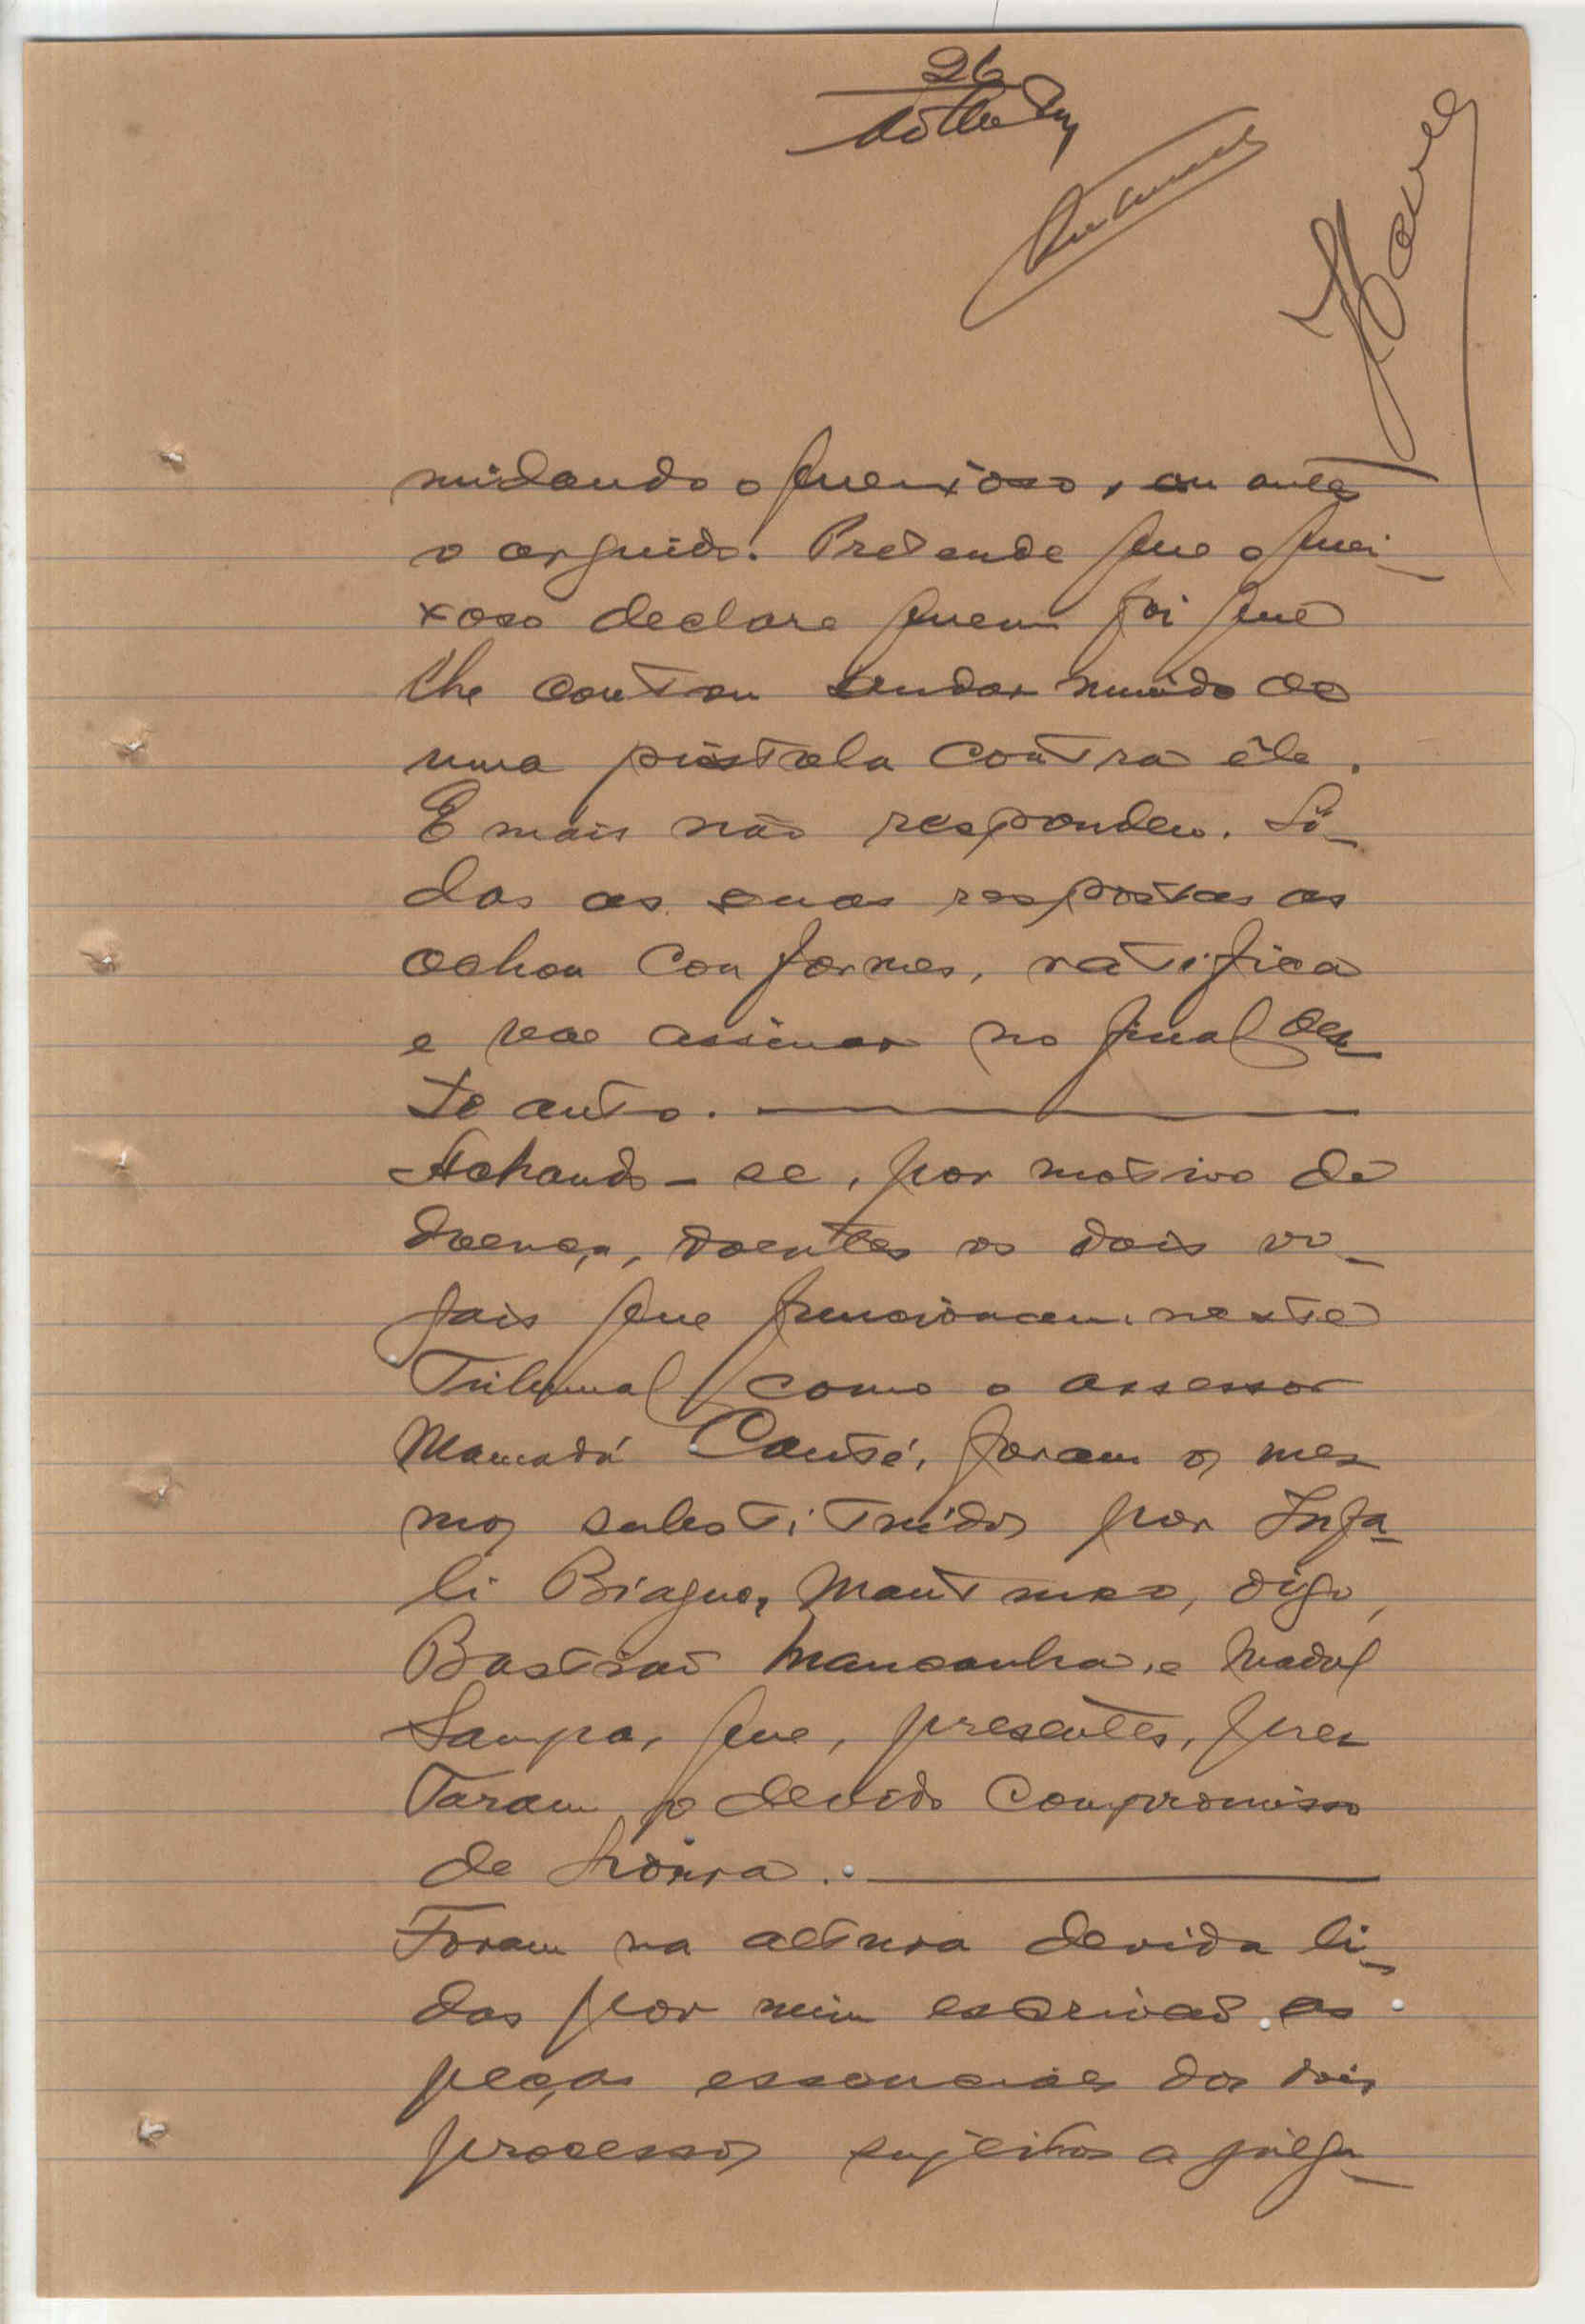 26
midando o queixoso, ou antes
o arguido. Pretende que o quei-
xoso declare quem foi que
lhe contou andar munido de
uma pistola contra êle.
E mais não respondeu. Li-
das as suas respostas as
achou conformes, ratifica
e vae assinar no final des-
te auto.
Achando-se, por motivo de
doença, doentes os dois vo-
gais que funcionam neste
Tribunal como o assessor
Mamadú Cansé, foram os mes
mos substituidos por Infa-
li Biague, Mant
Bastião Mancanha, e Madul
Sampa, que, presentes, pres
taram o devido compromisso
de honra.
Foram na altura devida li-
das por mim escrivão as
peças essenciais dos dois
processos sujeitos a julga-